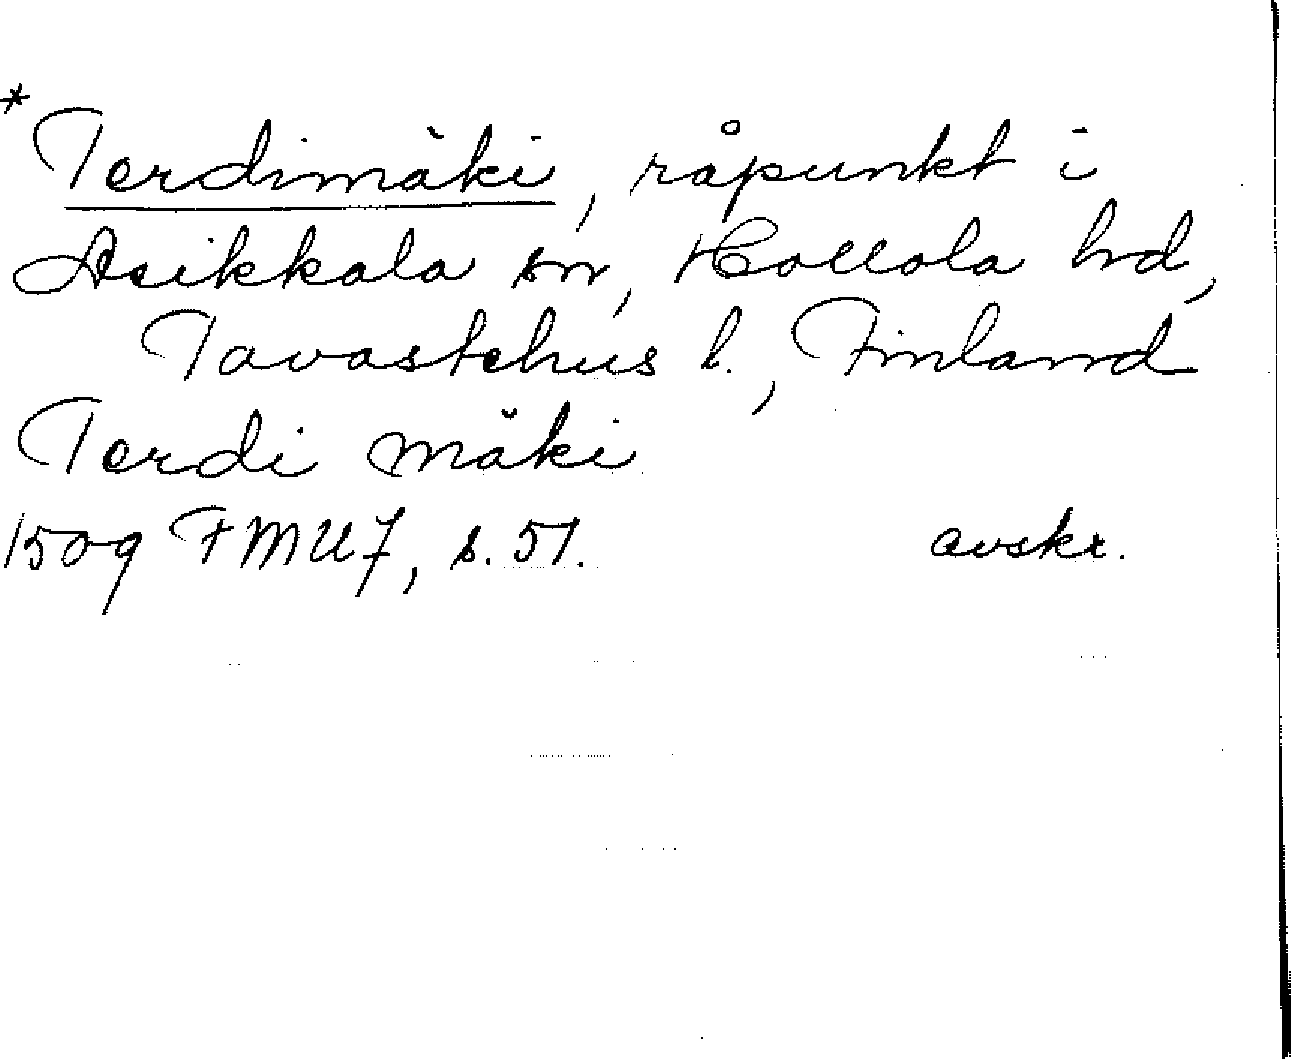 * Terdimäki, råpunkt i
Asikkala sn, Hollola hd,
Tavastehus l., Finland
Terdi mäki
1509 FMU 7, s. 51. avskr.